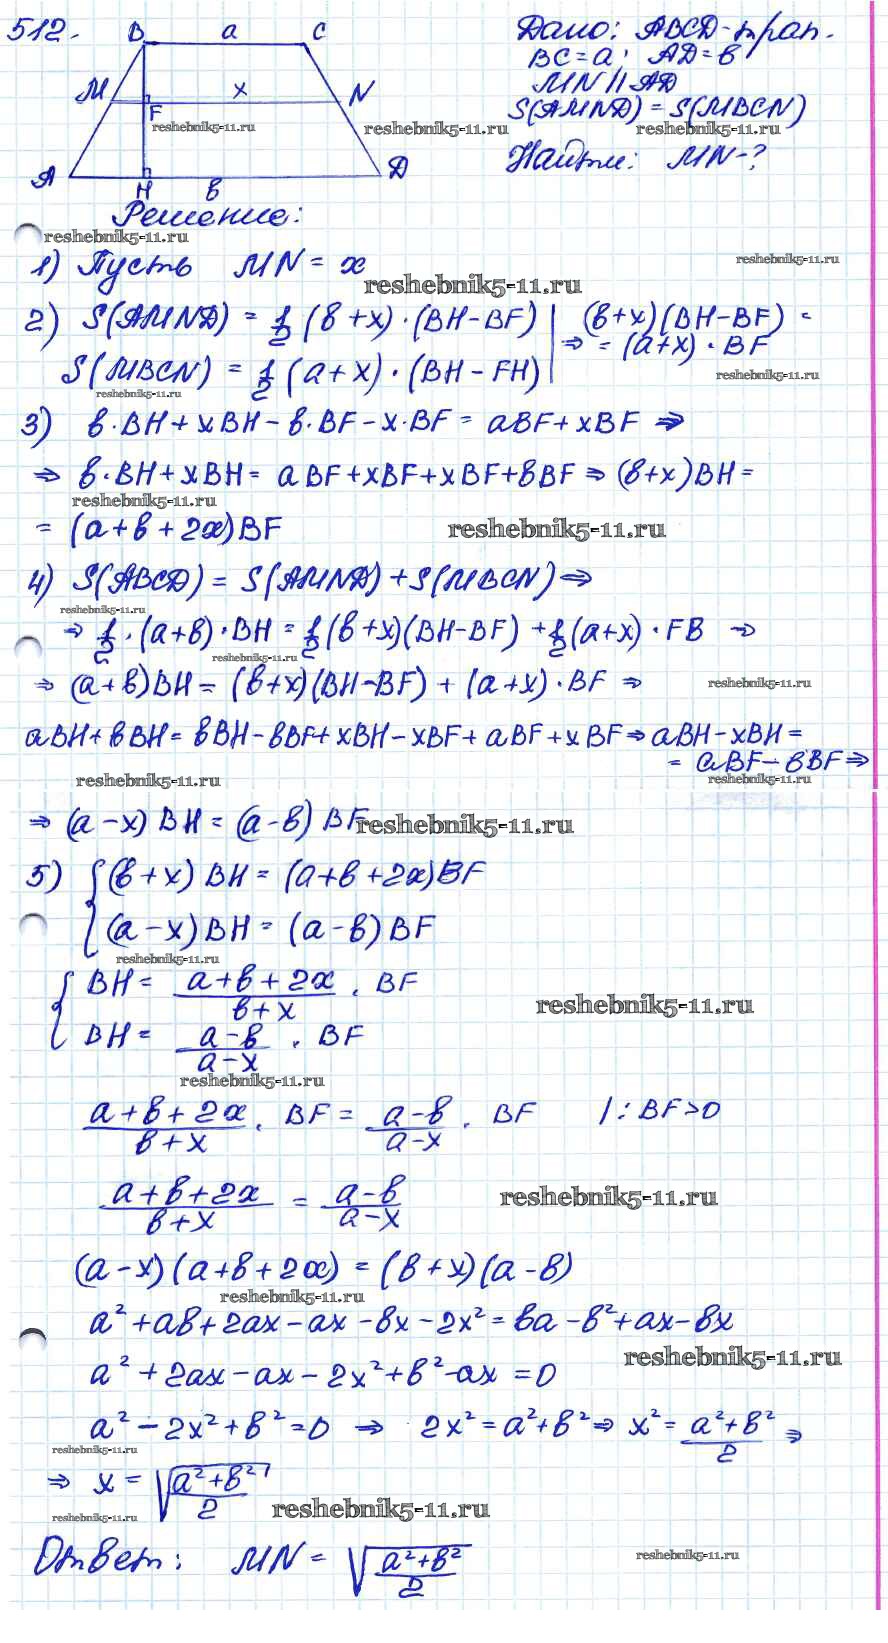 512. B a C Дано: ABCD-трап.
BC=a; AD=в
M x N MN || AD
F S(AMND) = S(MBCN)
reshebnik5-11.ru reshebnik5-11.ru reshebnik5-11.ru
A H в D Найти: MN-?
Решение:
reshebnik5-11.ru
1) Пусть MN = x reshebnik5-11.ru
reshebnik5-11.ru
2) S(AMND) = 1/2 (в+x)·(BH-BF) | (в+x)(BH-BF) =
⇒ = (a+x)·BF
S(MBCN) = 1/2 (a+x)·(BH-FH)
reshebnik5-11.ru reshebnik5-11.ru
3) в·BH + xBH - в·BF - x·BF = aBF + xBF ⇒
⇒ в·BH + xBH = aBF + xBF + xBF + вBF ⇒ (в+x)BH =
reshebnik5-11.ru
= (a+в+2x)BF reshebnik5-11.ru
4) S(ABCD) = S(AMND) + S(MBCN) ⇒
reshebnik5-11.ru
⇒ 1/2·(a+в)·BH = 1/2(в+x)(BH-BF) + 1/2(a+x)·FB ⇒
reshebnik5-11.ru
⇒ (a+в)BH = (в+x)(BH-BF) + (a+x)·BF ⇒ reshebnik5-11.ru
aBH + вBH = вBH - вBF + xBH - xBF + aBF + xBF ⇒ aBH - xBH =
= aBF - вBF ⇒
reshebnik5-11.ru reshebnik5-11.ru
⇒ (a-x) BH = (a-в) BF reshebnik5-11.ru
5) { (в+x) BH = (a+в+2x)BF
(a-x)BH = (a-в)BF
reshebnik5-11.ru
{ BH = (a+в+2x)/(в+x) · BF reshebnik5-11.ru
BH = (a-в)/(a-x) · BF
reshebnik5-11.ru
(a+в+2x)/(в+x) · BF = (a-в)/(a-x) · BF |: BF>0
(a+в+2x)/(в+x) = (a-в)/(a-x) reshebnik5-11.ru
(a-x)(a+в+2x) = (в+x)(a-в)
reshebnik5-11.ru
a² + aв + 2ax - ax - вx - 2x² = вa - в² + ax - вx
reshebnik5-11.ru
a² + 2ax - ax - 2x² + в² - ax = 0
a² - 2x² + в² = 0 ⇒ 2x² = a² + в² ⇒ x² = (a²+в²)/2 ⇒
reshebnik5-11.ru
⇒ x = √((a²+в²)/2) reshebnik5-11.ru
reshebnik5-11.ru
Ответ: MN = √((a²+в²)/2) reshebnik5-11.ru